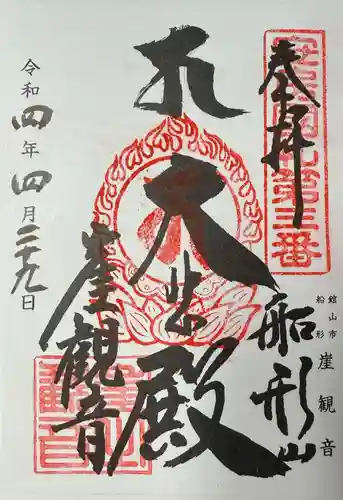 奉拝
安房国札第三番
船形山
館山市
船形
崖観音
大悲殿
崖観音
令和四年四月二十九日